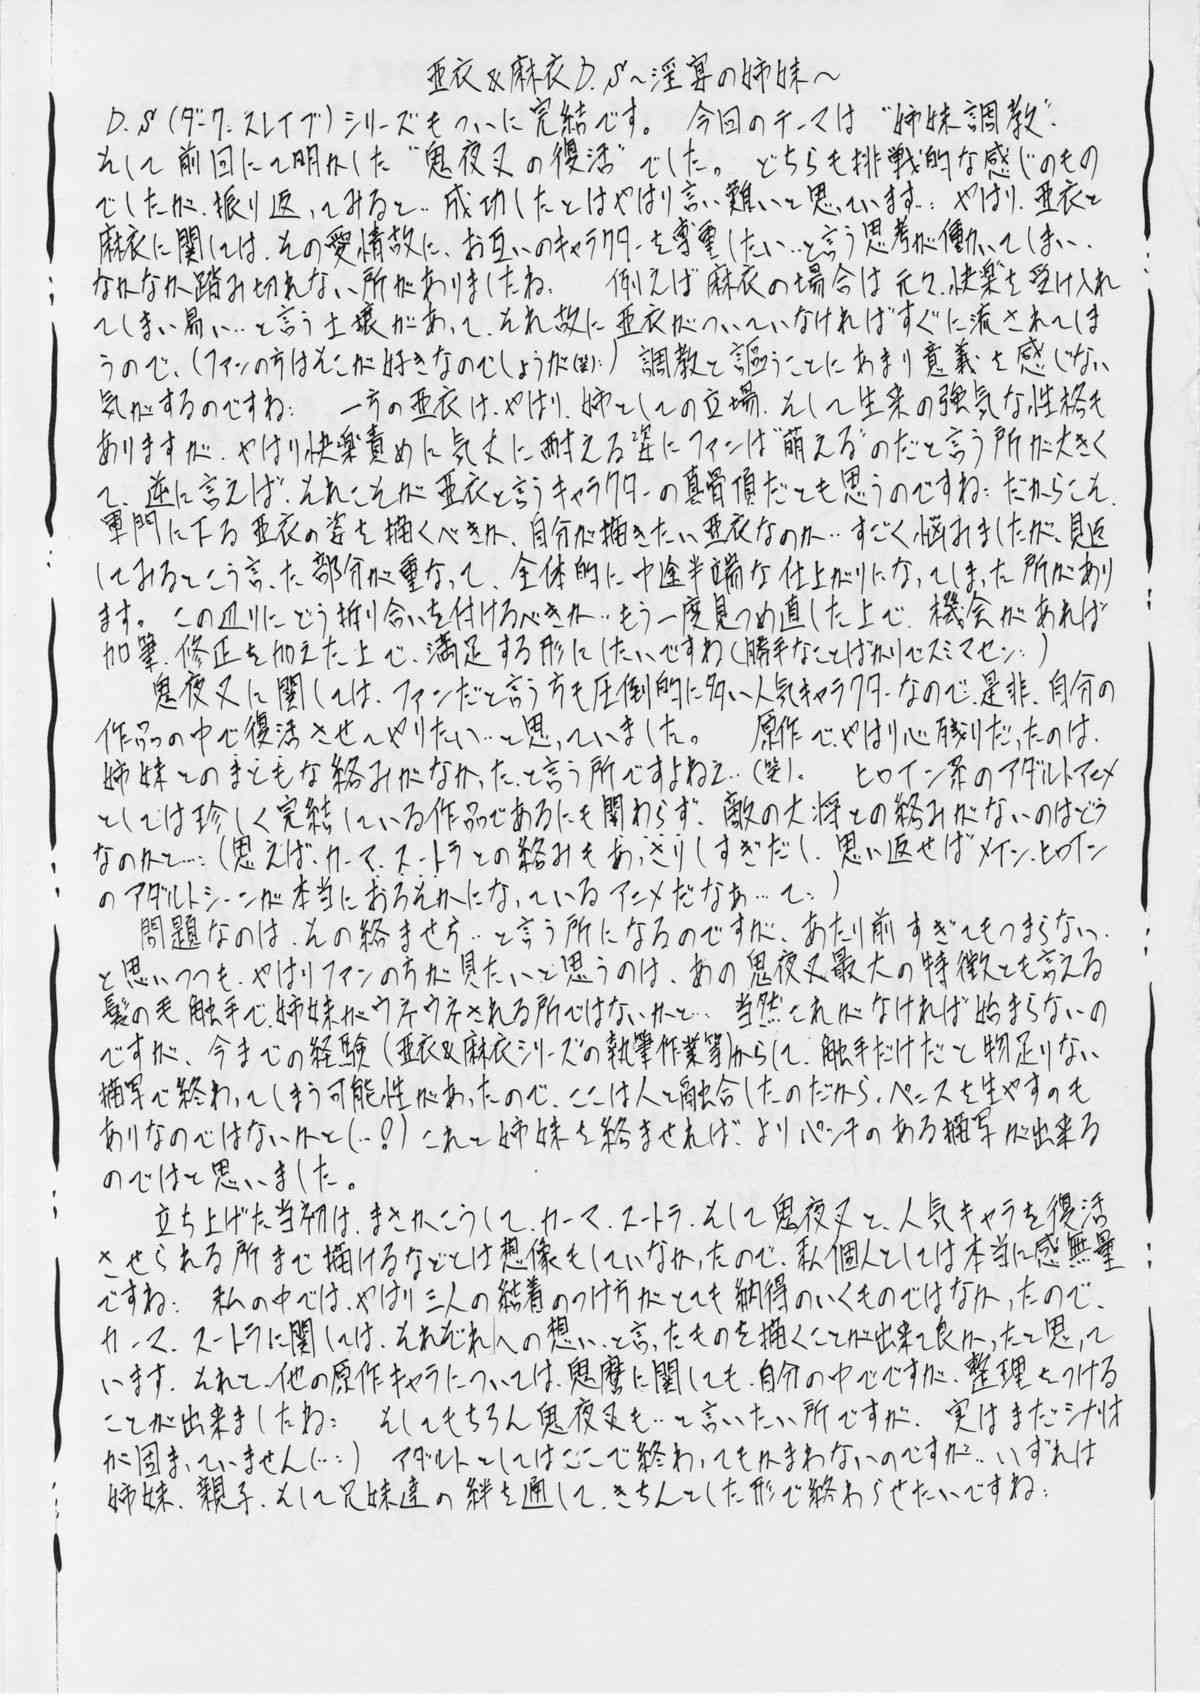 亜衣&麻衣D.S～淫宴の姉妹～
D.S(ダーク・スレイブ)シリーズもついに完結です。 今回のテーマは"姉妹調教"、
そして前回にて明かした"鬼夜叉の復活"でした。 どちらも挑戦的な感じのもの
でしたが、振り返ってみると‥成功したとはやはり言い難いと思っています‥: やはり、亜衣と
麻衣に関しては、その愛情故に、お互いのキャラクターを尊重したい‥と言う思考が働いてしまい、
なかなか踏み切れない所がありましたね、 例えば麻衣の場合は元々、快楽を受け入れ
てしまい易い‥と言う土壌があって、それ故に亜衣がついていなければすぐに流されてしま
うので、(ファンの方はそこが好きなのでしょうが(笑):)調教と謳うことにあまり意義を感じない
気がするのですね: 一方の亜衣は、やはり、姉としての立場、そして生来の強気な性格も
ありますが、やはり快楽責めに気丈に耐える姿にファンは"萌える"のだと言う所が大きく
て、逆に言えば、それこそが亜衣と言うキャラクターの真骨頂だとも思うのですね: だからこそ、
軍門に下る亜衣の姿を描くべきか、自分が描きたい亜衣なのか‥すごく悩みましたが、見返
してみるとこう言った部分が重なって、全体的に中途半端な仕上がりになってしまった所があり
ます。 この辺りにどう折り合いを付けるべきか‥もう一度見つめ直した上で、機会があれば
加筆、修正を加えた上で、満足する形にしたいですね(勝手なことばかりでスミマセン:)
鬼夜叉に関しては、ファンだと言う方も圧倒的に多い人気キャラクターなので、是非、自分の
作品の中で復活させてやりたい‥と思っていました。 原作で、やはり心残りだったのは、
姉妹とのまともな絡みがなかった、と言う所ですよねェ‥(笑)。 ヒロイン系のアダルトアニメ
としては珍しく完結している作品であるにも関わらず、敵の大将との絡みがないのはどう
なのかと…:(思えば、カーマ、スートラとの絡みもあっさりしすぎだし、思い返せばメイン、ヒロイン
のアダルトシーンが本当におろそかになっているアニメだなぁ…て:)
問題なのは、その絡ませ方‥と言う所になるのですが、あたり前すぎてもつまらない、
と思いつつも、やはりファンの方が見たいと思うのは、あの鬼夜叉最大の特徴とも言える
髪の毛触手で、姉妹がウネウネされる所ではないかと‥ 当然これがなければ始まらないの
ですが、今までの経験(亜衣&麻衣シリーズの執筆作業等)からして、触手だけだと物足りない
描写で終わってしまう可能性があったので、ここは人と融合したのだから、ペニスを生やすのも
ありなのではないかと(‥?)これと姉妹を絡ませれば、よりパンチのある描写が出来る
のではと思いました。
立ち上げた当初は、まさかこうして、カーマ、スートラ、そして鬼夜叉と、人気キャラを復活
させられる所まで描けるなどとは想像もしていなかったので、私個人としては本当に感無量
ですね: 私の中では、やはり三人の結着のつけ方がとても納得のいくものではなかったので、
カーマ、スートラに関しては、それぞれへの想い、と言ったものを描くことが出来て良かったと思って
います、それと、他の原作キャラについては、鬼麿に関しても、自分の中でですが、整理をつける
ことが出来ましたね: そしてもちろん鬼夜叉も‥と言いたい所ですが、実はまだシナリオ
が固まっていません(…:) アダルトとしてはここで終わってもかまわないのですが‥いずれは
姉妹、親子、そして兄妹達の絆を通して、きちんとした形で終わらせたいですね: